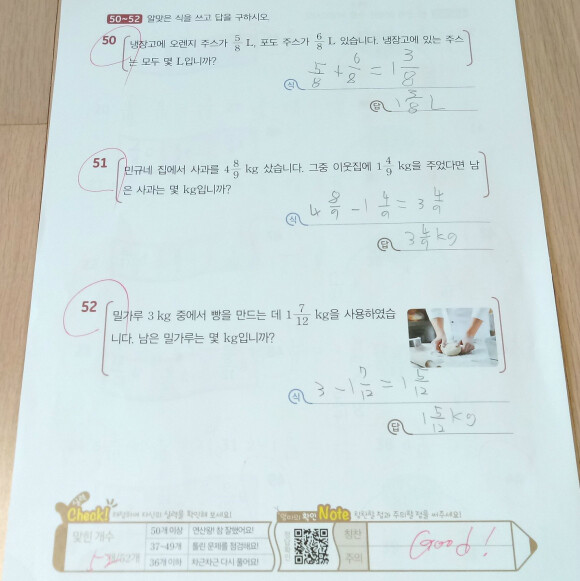 50~52 알맞은 식을 쓰고 답을 구하시오.
50 냉장고에 오렌지 주스가 5/8 L, 포도 주스가 6/8 L 있습니다. 냉장고에 있는 주스
는 모두 몇 L입니까?
식 5/8 + 6/8 = 1 3/8
답 1 3/8 L
51 민규네 집에서 사과를 4 8/9 kg 샀습니다. 그중 이웃집에 1 4/9 kg을 주었다면 남
은 사과는 몇 kg입니까?
식 4 8/9 - 1 4/9 = 3 4/9
답 3 4/9 kg
52 밀가루 3 kg 중에서 빵을 만드는 데 1 7/12 kg을 사용하였습
니다. 남은 밀가루는 몇 kg입니까?
식 3 - 1 7/12 = 1 5/12
답 1 5/12 kg
Check! 자신의 실력을 확인해 보세요!
맞힌 개수
50개 이상 연산왕! 참 잘했어요!
37~49개 틀린 문제를 점검해요!
36개 이하 차근차근 다시 풀어요!
확인 Note 칭찬할 점과 주의할 점을 써주세요!
칭찬
주의
Good!